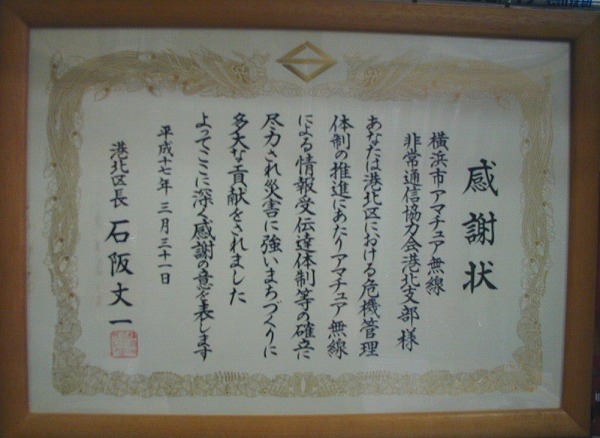 感謝状
横浜市アマチュア無線
非常通信協力会港北支部 様
あなたは港北区における危機管理
体制の推進にあたりアマチュア無線
による情報受伝達体制等の確立に
尽力され災害に強いまちづくりに
多大な貢献をされました
よってここに深く感謝の意を表します
平成十七年 三月三十一日
港北区長 石阪丈一